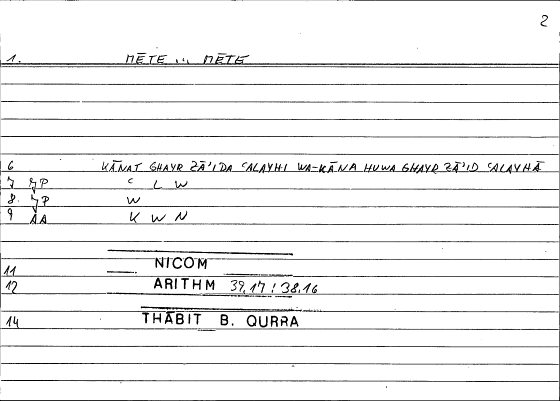 2
1. MĒTE ... MĒTE
6 KĀNAT GHAYR ZĀ'IDA ʿALAYHI WA-KĀNA HUWA GHAYR ZĀ'ID ʿALAYHĀ
7 JP ʿ L W
8. JP W
9 AA K W N
11 NICOM
12 ARITHM 39,17 : 38,16
14 THĀBIT B. QURRA